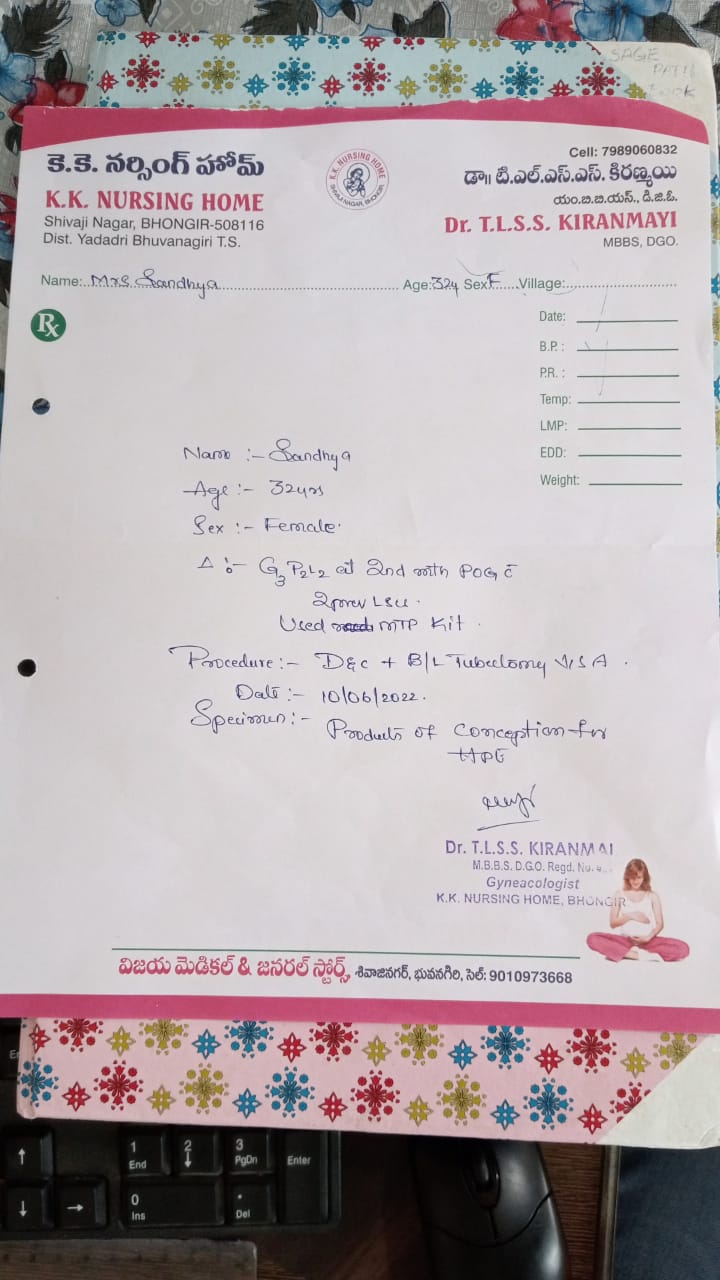 SAGE
PATH
కె.కె. నర్సింగ్ హోమ్
K.K. NURSING HOME
Shivaji Nagar, BHONGIR-508116
Dist. Yadadri Bhuvanagiri T.S.
K.K. NURSING HOME
SHIVAJI NAGAR, BHONGIR
Cell: 7989060832
డా॥ టి.ఎల్.ఎస్.ఎస్. కిరణ్మయి
యం.బి.బి.యస్., డి.జి.ఓ.
Dr. T.L.S.S. KIRANMAYI
MBBS, DGO.
Name: Mrs Sandhya Age: 32y Sex F Village:
Rx
Date:
B.P. :
P.R. :
Temp:
LMP:
EDD:
Weight:
Name :- Sandhya
Age :- 32yrs
Sex :- Female.
Δ :- G3 P2L2 at 2nd mth POG c̄
2 prev LSCS.
Used MTP Kit.
Procedure :- D&C + B/L Tubectomy SA.
Date :- 10/06/2022.
Specimen :- Products of conception for
HPE
Dr. T.L.S.S. KIRANMAI
M.B.B.S. D.G.O. Regd. No.
Gyneacologist
K.K. NURSING HOME, BHONGIR
విజయ మెడికల్ & జనరల్ స్టోర్స్, శివాజినగర్, భువనగిరి, సెల్: 9010973668
1
End
2
3
PgDn
Enter
0
Ins
.
Del